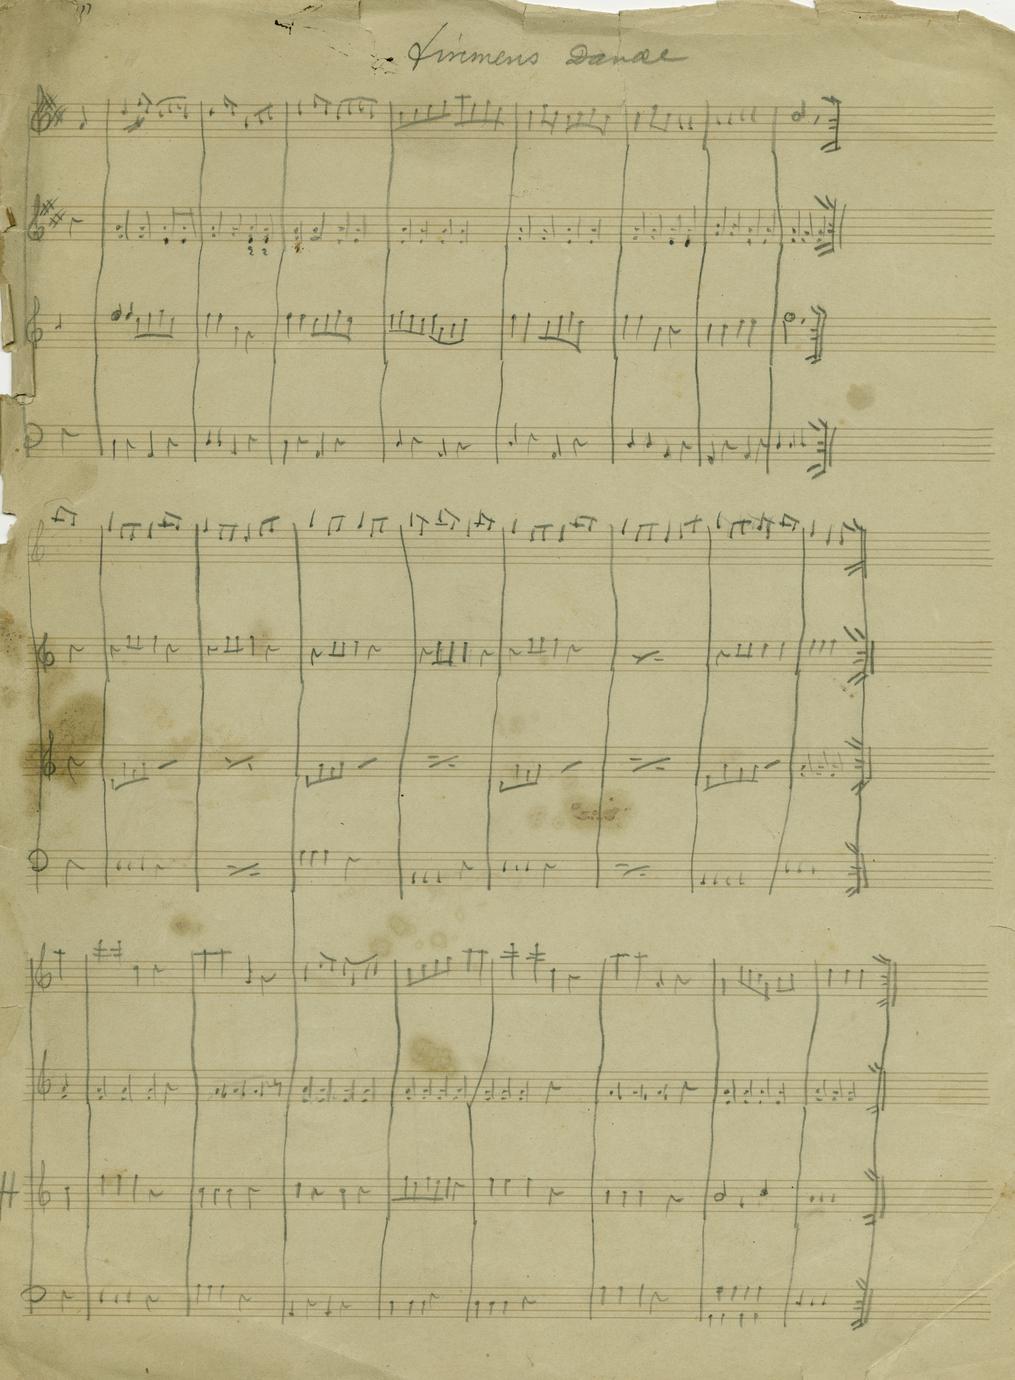 Firemens Danse
H